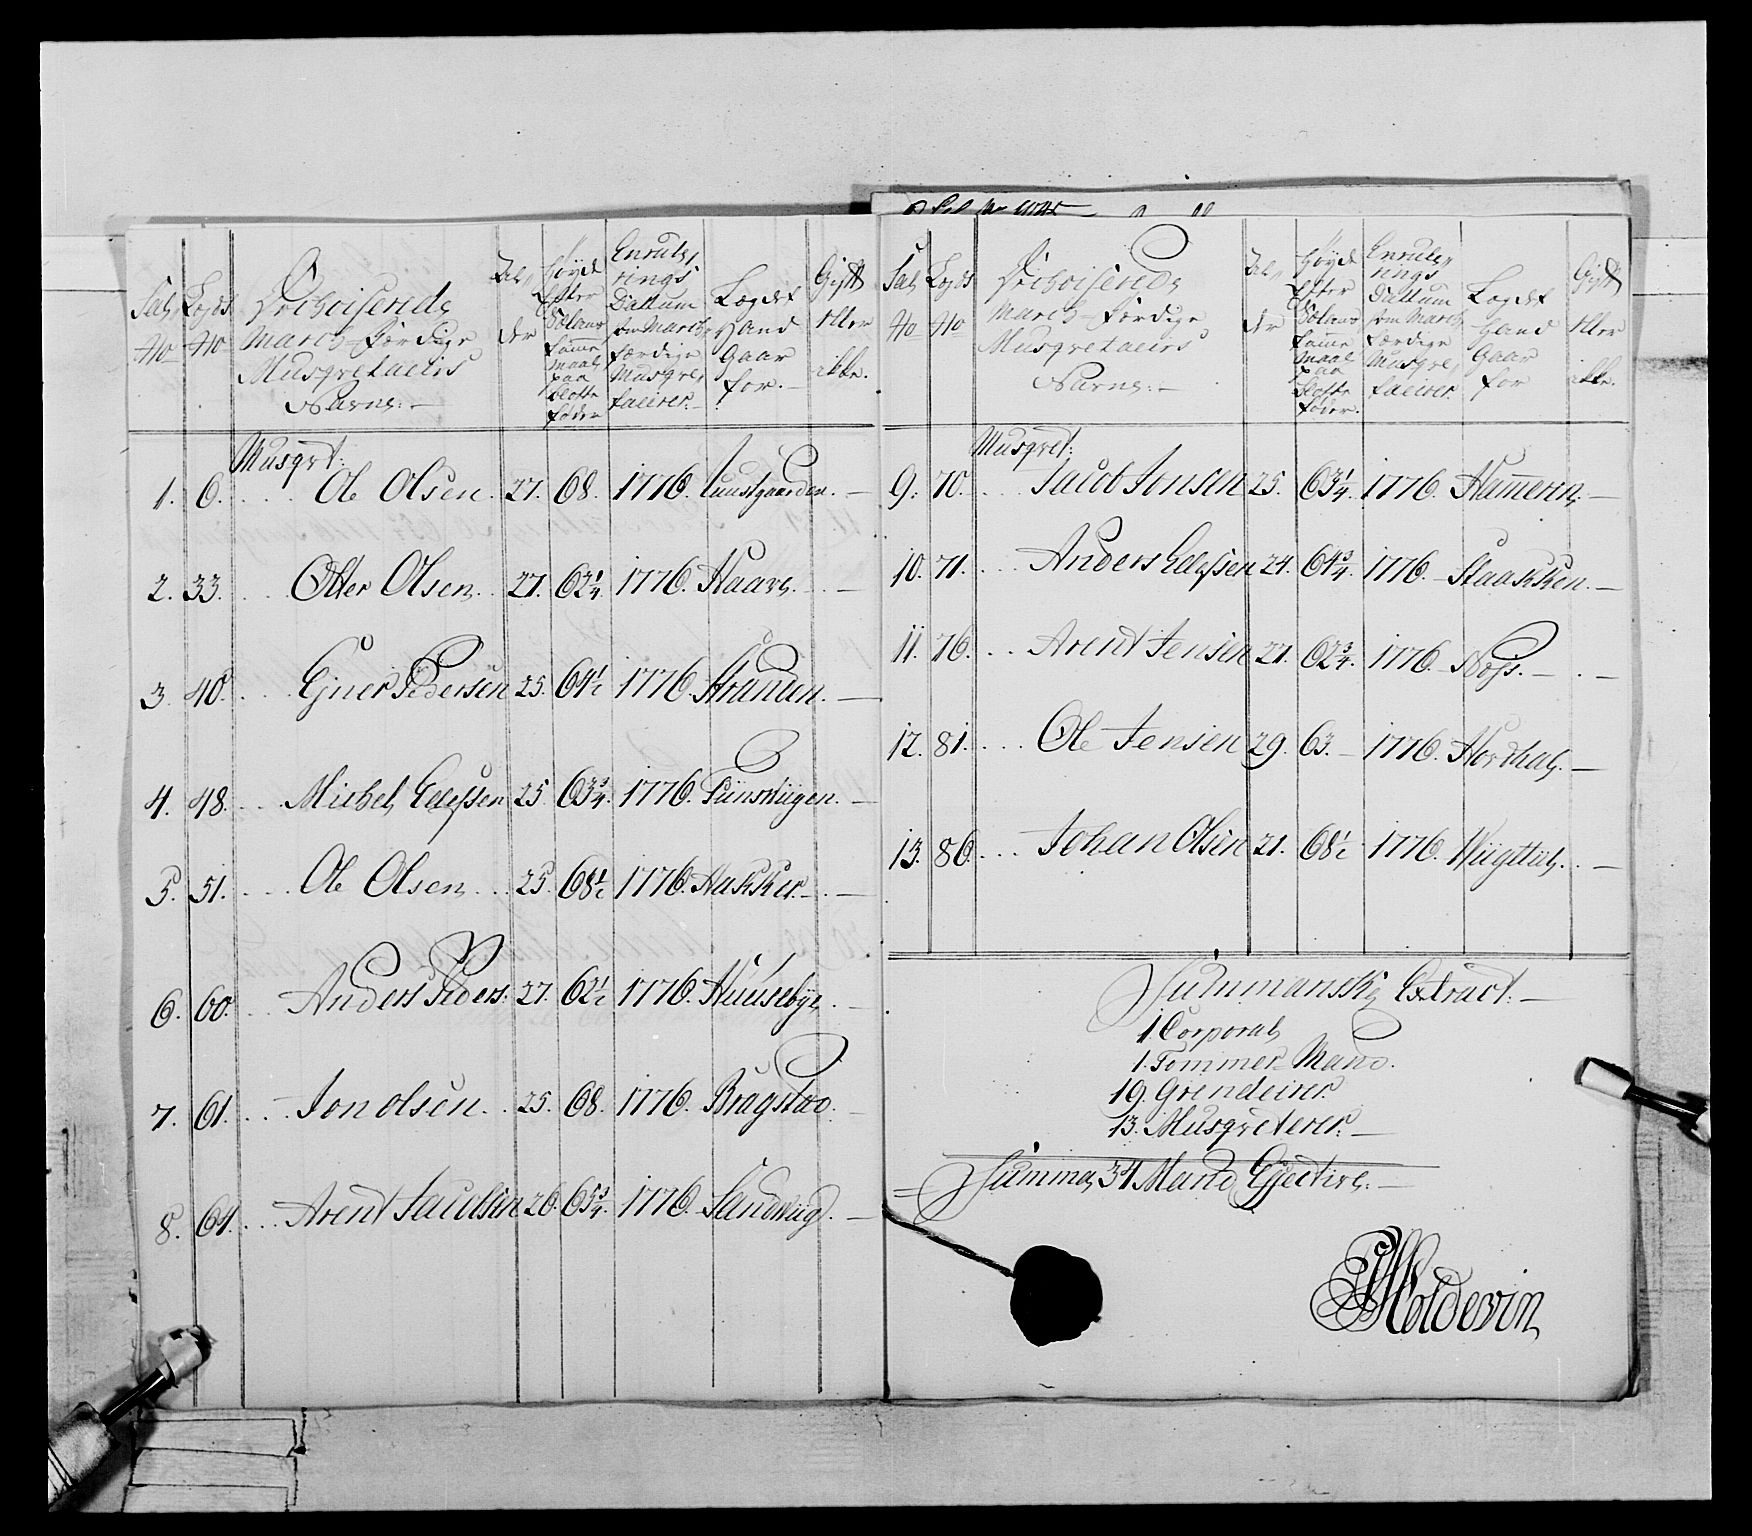 Tal No
Legds No
March Færdige
Musqvetaeirs
Navne:
Alder
Høyde Efter Solans samme maal paa blotte føder
Enrulerings Dattum som March færdige Musqvetairer
Legdet Hand Gaar for.
Gift eller ikke.
Musqvt:
1. 6. Ole Olsen. 27. 68. 1776.
2. 33. Otter Olsen. 27. 62 1/4. 1776. Haave.
3. 40. Ejner Pedersen 25. 64 1/2 1776. Stranden.
4. 48. Michel Ellefsen 25. 63 3/4. 1776.
5. 51. Ole Olsen 25. 68 1/2 1776. Hakker.
6. 60. Anders Peders: 27. 62 1/2 1776. Huusebye.
7. 61. Jon olsen. 25. 68. 1776. Bragstad.
8. 64. Arent Jacobsen 26. 65 3/4. 1776. Sandviig.
Tal No
Legds No
March Færdige
Musqvetaeirs
Navne:
Alder
Høyde Efter Solans samme maal paa blotte føder.
Enrulerings Dattum som March færdige Musqvetaeirer
Legdet Hand Gaar for
Gift eller ikke.
Musqvet:
9. 70. Jacob Jonsen 25. 63 1/4. 1776. Hammern.
10. 71. Anders Ellefsen 24. 64 3/4. 1776. Staakken.
11. 76. Arent Jensen 21. 62 3/4. 1776.
12. 81. Ole Jensen 29. 63. 1776. Hordhal.
13. 86. Johan Olsen 21. 68 1/2 1776.
Summariske Extract:
1. Corporal
1. Tømmer Mand.
19. Grendeirer.
13. Musqveterer.
Summa 34 Mand Effective.
Coldevin